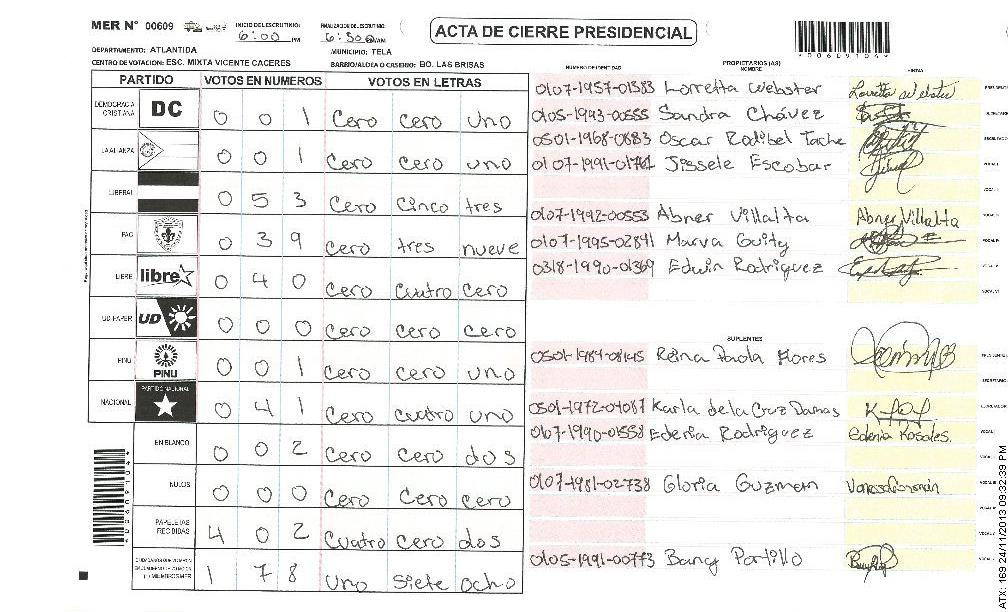 MER N° 00609
INICIO DEL ESCRUTINIO: 6:00 PM
FINALIZACION DEL ESCRUTINIO: 6:30 AM
ACTA DE CIERRE PRESIDENCIAL
DEPARTAMENTO: ATLANTIDA
MUNICIPIO: TELA
CENTRO DE VOTACION: ESC. MIXTA VICENTE CACERES
BARRIO/ALDEA O CASERIO: BO. LAS BRISAS
PARTIDO VOTOS EN NUMEROS VOTOS EN LETRAS
DEMOCRACIA CRISTIANA DC 0 0 1 Cero Cero uno
LA ALIANZA 0 0 1 Cero Cero uno
LIBERAL 0 5 3 Cero Cinco tres
PAC 0 3 9 Cero tres nueve
LIBRE libre 0 4 0 Cero Cuatro Cero
UD-FAPER UD 0 0 0 Cero Cero Cero
PINU PINU 0 0 1 Cero Cero uno
NACIONAL PARTIDO NACIONAL 0 4 1 Cero Cuatro uno
EN BLANCO 0 0 2 Cero Cero dos
NULOS 0 0 0 Cero Cero Cero
PAPELETAS RECIBIDAS 4 0 2 Cuatro Cero dos
1 7 8 uno Siete ocho
NUMERO DE IDENTIDAD
PROPIETARIOS (AS)
NOMBRE
FIRMA
0107-1957-01383 Lorretta Webster
0105-1993-00555 Sandra Chávez
0501-1968-0683 Oscar Rodibel Tache
0107-1991-01761 Jissele Escobar
0107-1992-00553 Abner Villalta Abner Villalta
0107-1995-02841 Marva Guity
0318-1990-01369 Edwin Rodriguez
SUPLENTES
0501-1984-08145 Reina Paola Flores
0501-1972-04087 Karla de la Cruz Damas
0107-1990-01558 Edenia Rodriguez Edenia Rosales.
0107-1981-02738 Gloria Guzman
0105-1991-00773 Bancy Portillo
ATX: 169 24/11/2013 09:32:39 PM